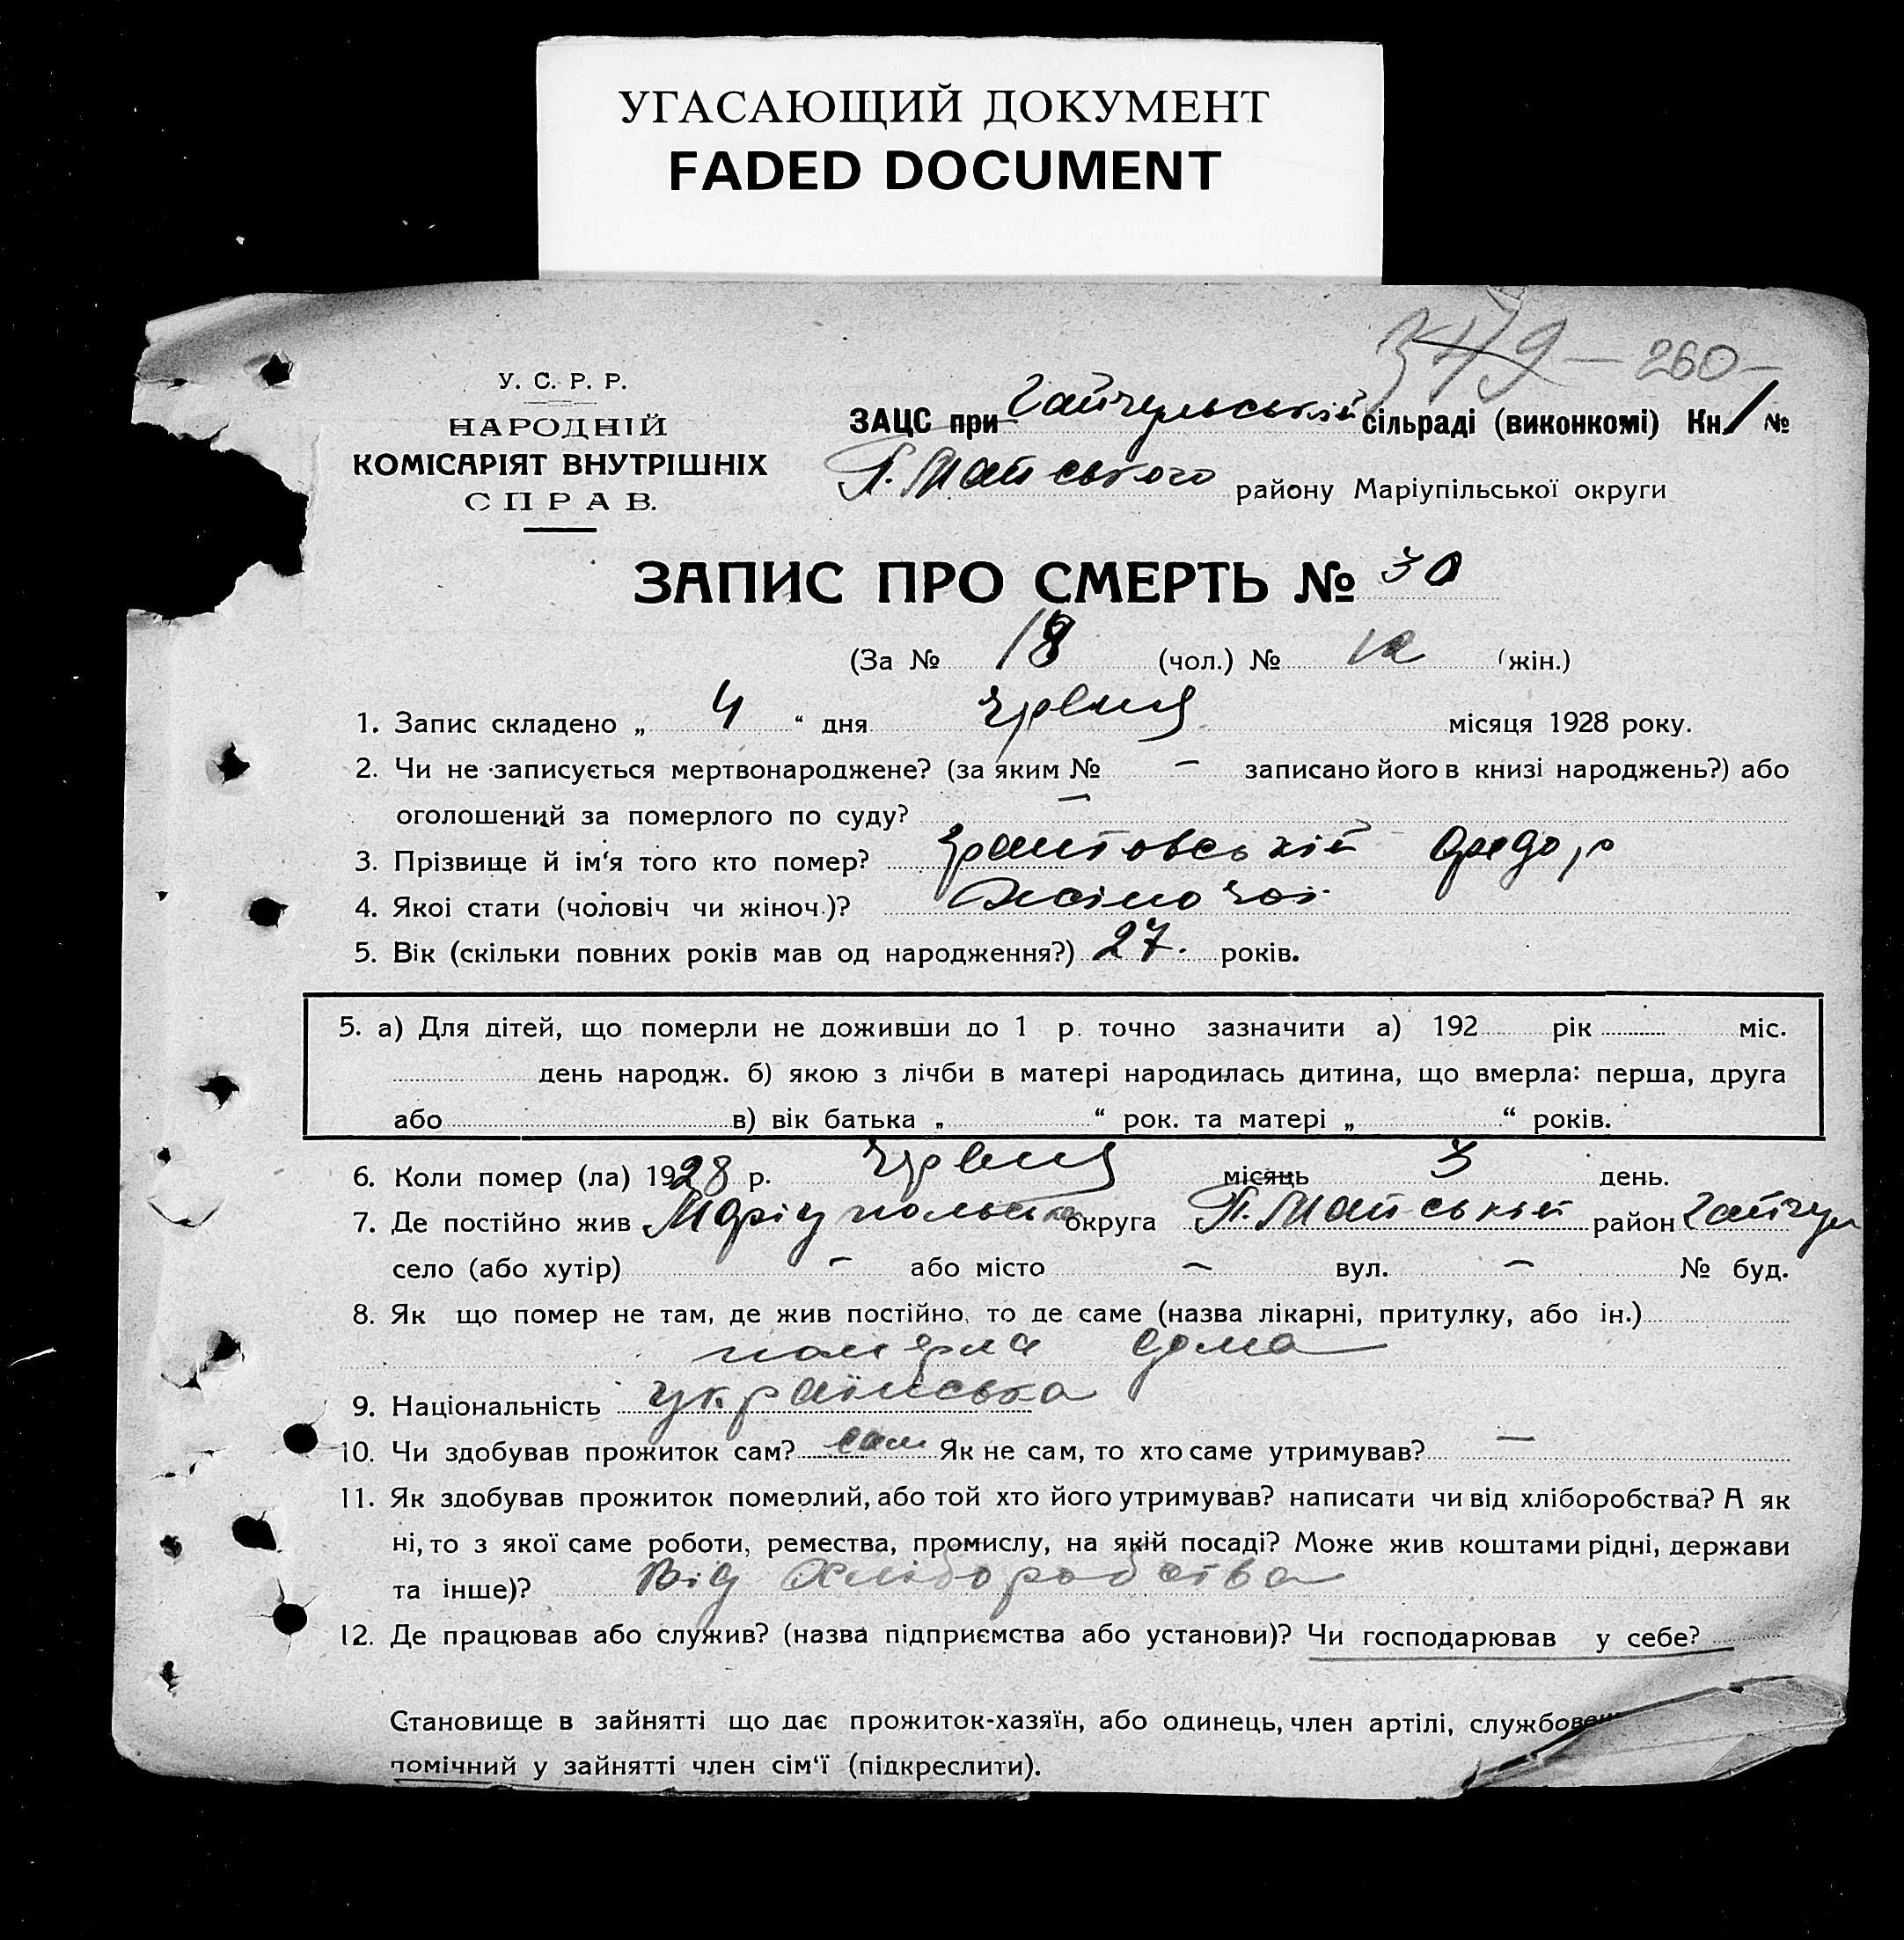 УГАСАЮЩИЙ ДОКУМЕНТ
FADED DOCUMENT
349 — 260 —
У. С. Р. Р.
НАРОДНІЙ
КОМІСАРІЯТ ВНУТРІШНІХ
СПРАВ.
ЗАЦС при Гайчульській сільраді (виконкомі) Кн. 1 №
П. Майського району Маріупільської округи
ЗАПИС ПРО СМЕРТЬ № 30
(За № 18 (чол.) № 12 (жін.)
1. Запис складено „ 4 “ дня червня місяця 1928 року.
2. Чи не записується мертвонароджене? (за яким № – записано його в книзі народжень?) або
оголошений за померлого по суду? –
3. Прізвище й ім‘я того кто помер? Федор
4. Якоі стати (чоловіч чи жіноч.)?
5. Вік (скільки повних років мав од народження?) 27. років.
5. а) Для дітей, що померли не доживши до 1 р. точно зазначити а) 192 рік міс.
день народж. б) якою з лічби в матері народилась дитина, що вмерла: перша, друга
або в) вік батька „ “ рок. та матері „ “ років.
6. Коли помер (ла) 1928 р. червня місяць 3 день.
7. Де постійно жив Маріупольська округа П. Майський район Гайчул
село (або хутір) – або місто – вул. – № буд.
8. Як що помер не там, де жив постійно, то де саме (назва лікарні, притулку, або ін.)
померла дома
9. Національність українська
10. Чи здобував прожиток сам? сам Як не сам, то хто саме утримував? –
11. Як здобував прожиток померлий, або той хто його утримував? написати чи від хліборобства? А як
ні, то з якої саме роботи, ремества, промислу, на якій посаді? Може жив коштами рідні, держави
та інше)? Від хліборобства
12. Де працював або служив? (назва підприємства або установи)? Чи господарював у себе?
Становище в зайнятті що дає прожиток-хазяїн, або одинець, член артілі, службовец
помічний у зайнятті член сім‘ї (підкреслити).